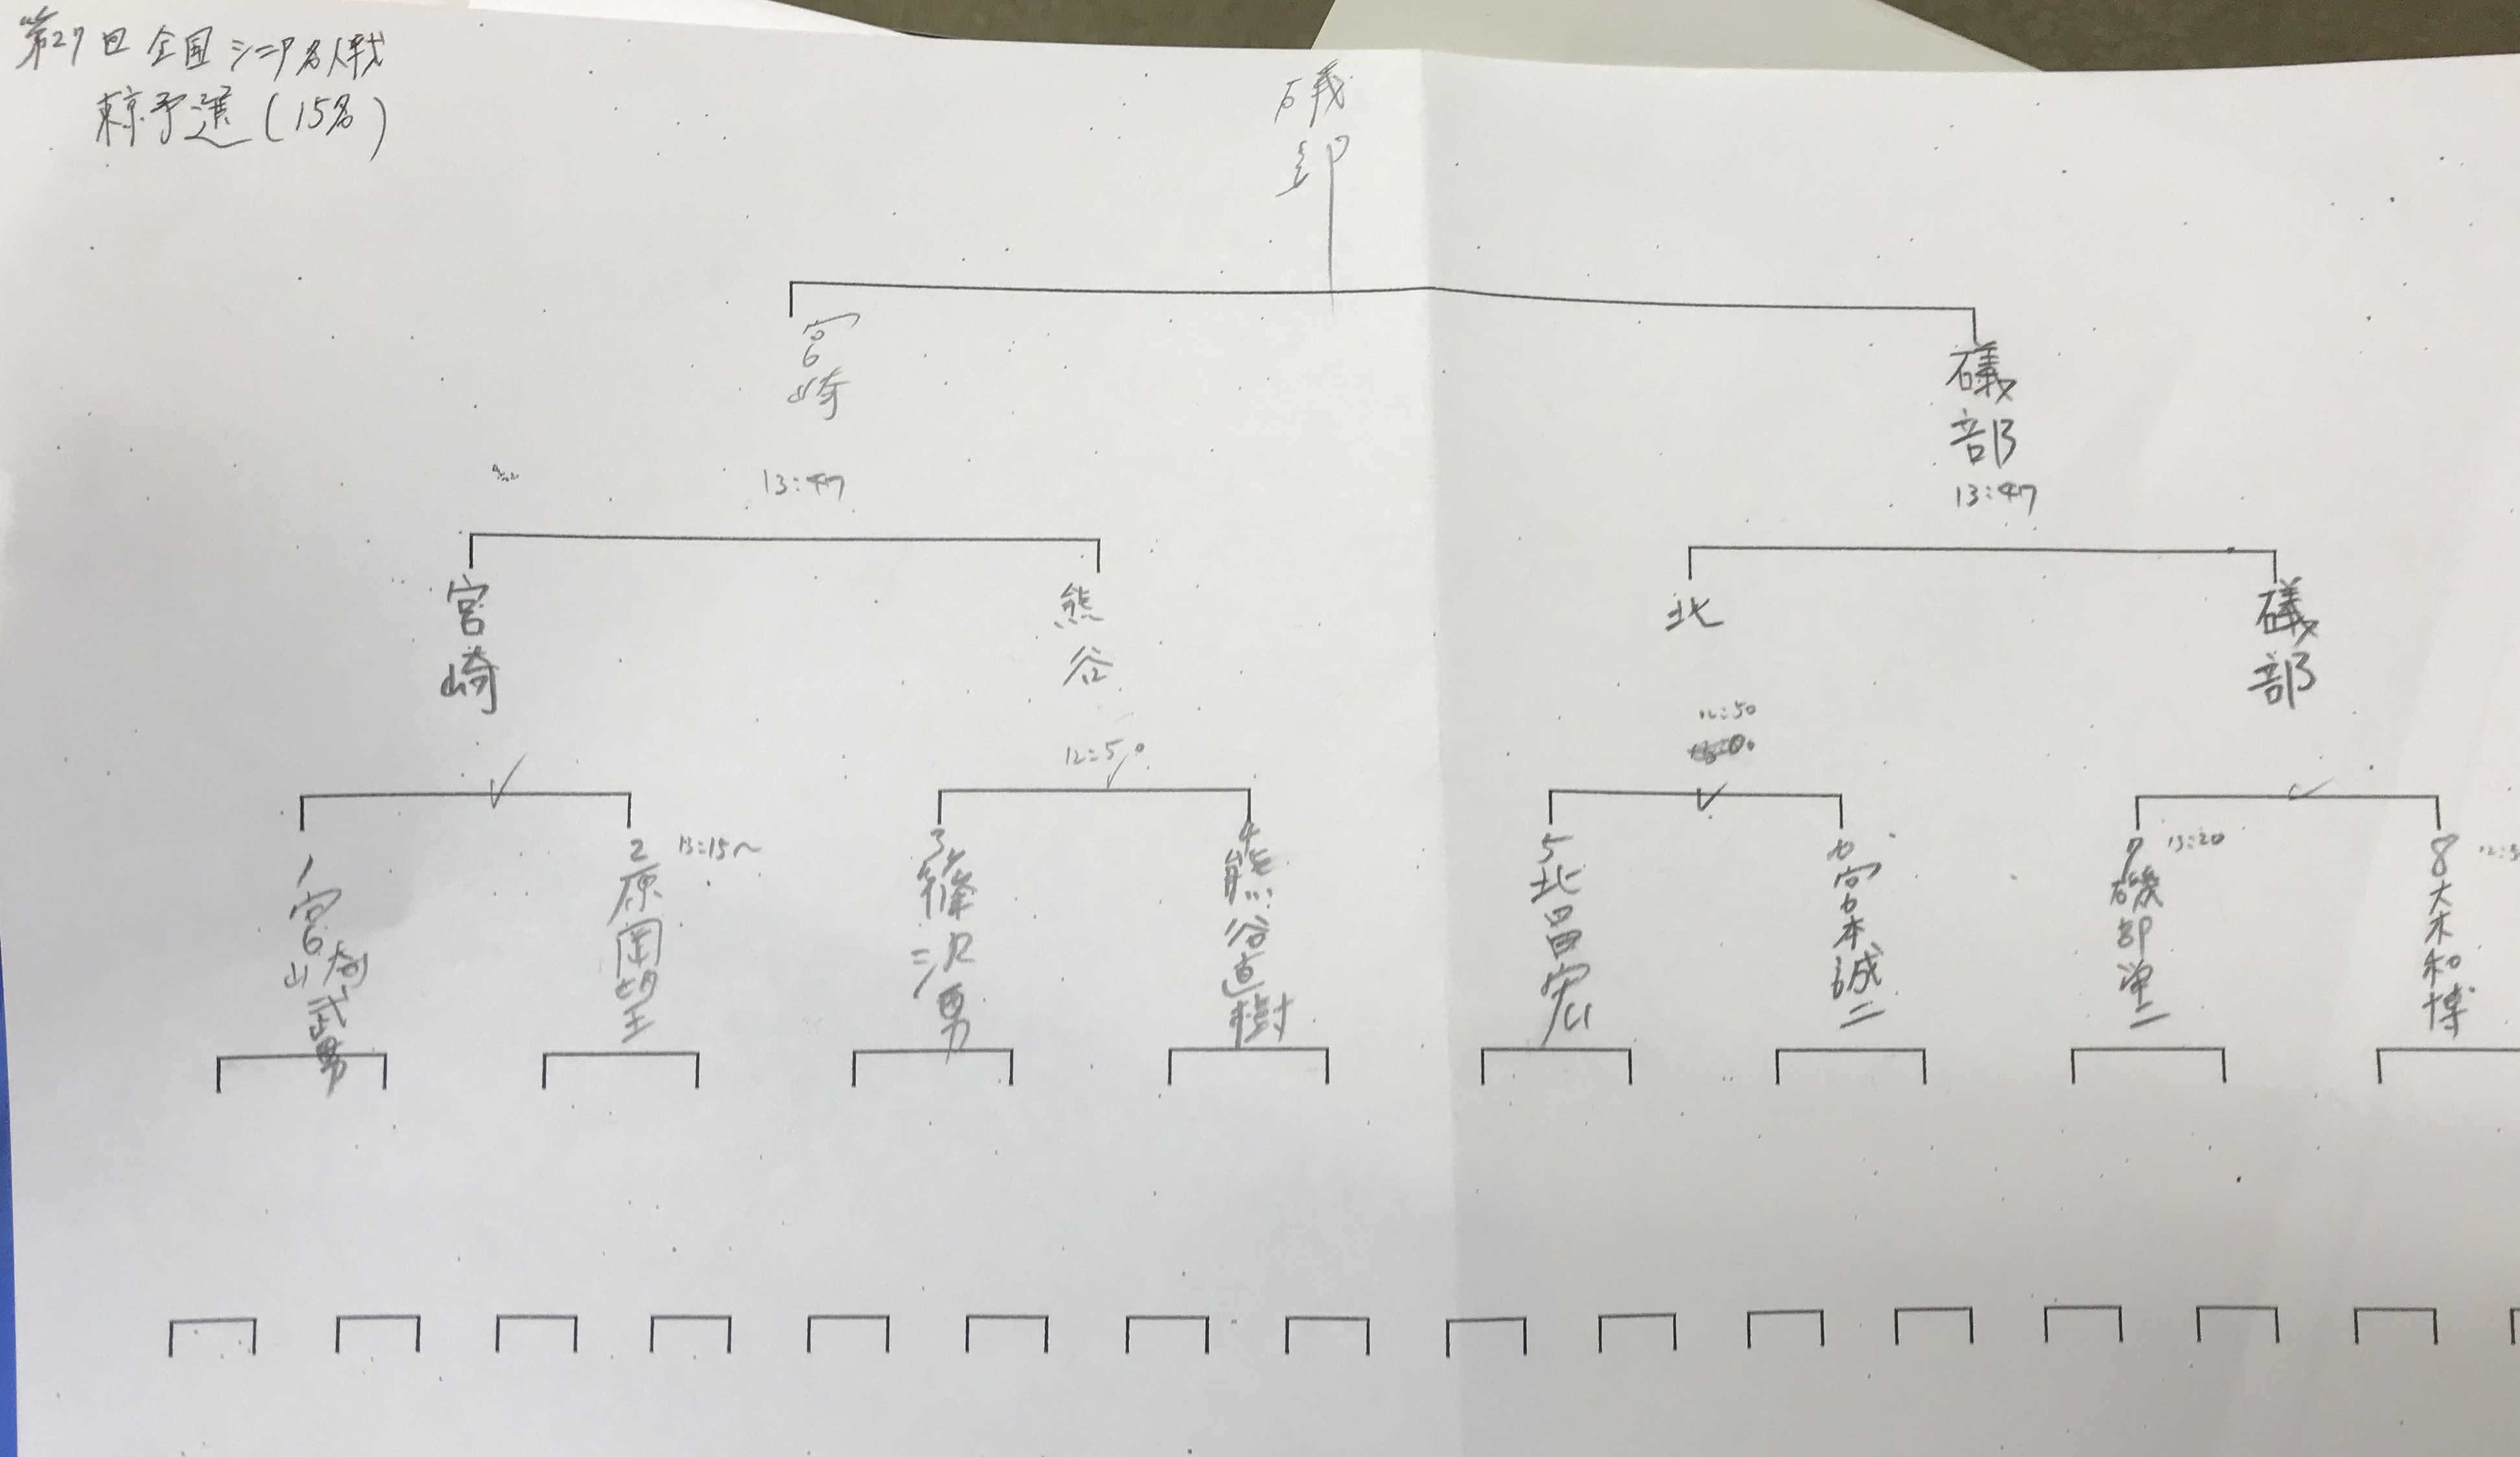 第27回 全国シニア名人戦
東京予選(15名)
磯部
宮崎
磯部
13:47
13:47
宮崎
熊谷
北
磯部
12:50
12:50
1 宮崎武男
2 原岡望
13:15〜
3 篠沢勇
4 熊谷直樹
5 北昌宏
6 宮本誠二
7 磯部洋二
13:20
8 大木和博